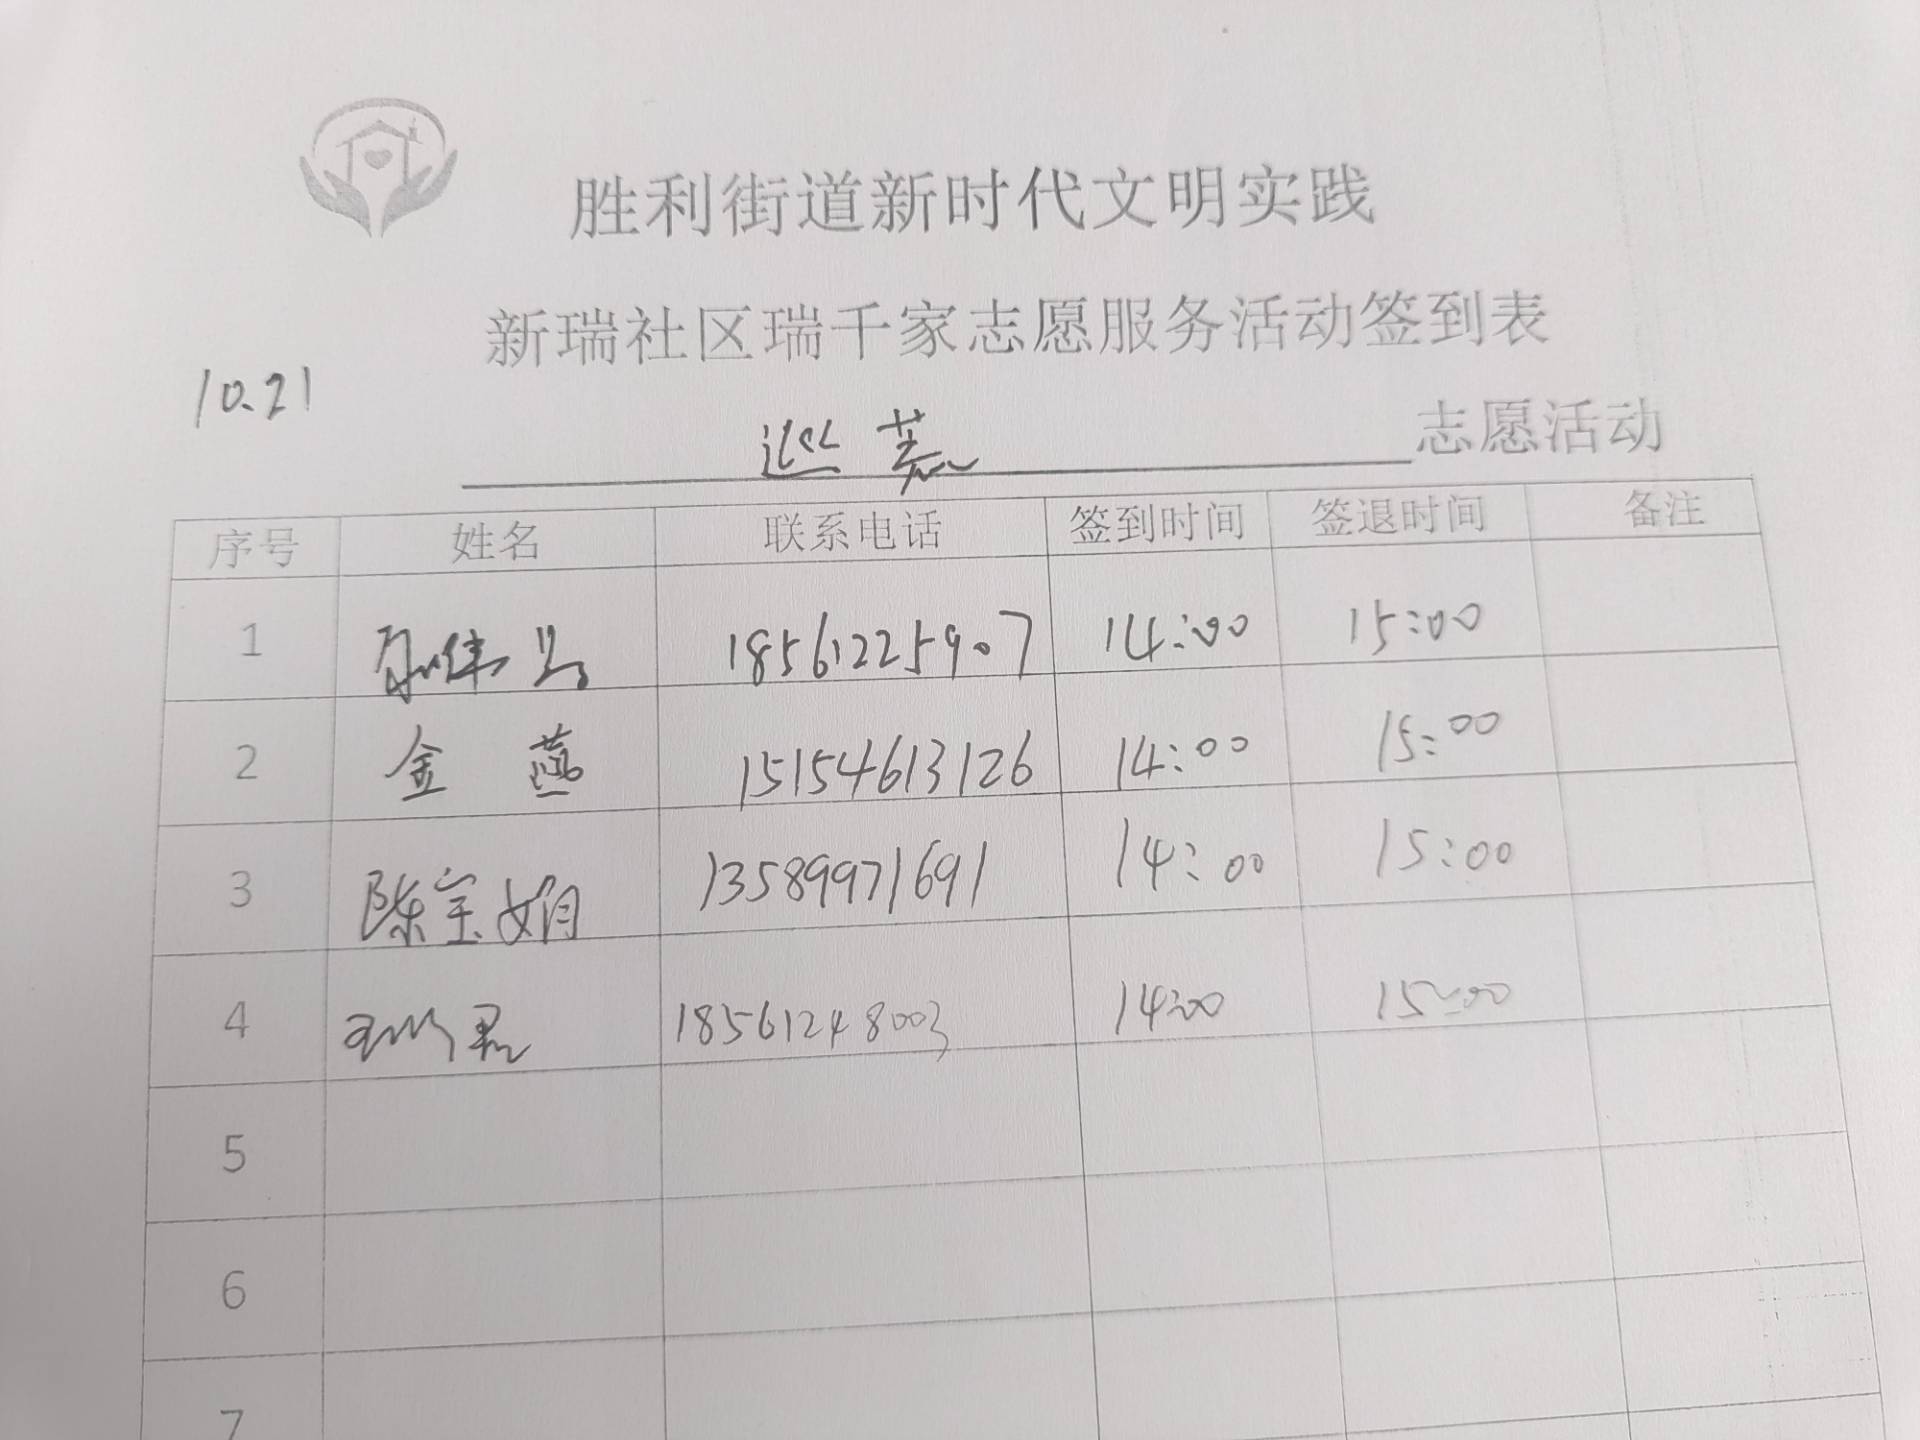 胜利街道新时代文明实践
新瑞社区瑞千家志愿服务活动签到表
10.21
巡 志愿活动
序号 姓名 联系电话 签到时间 签退时间 备注
1 18561225907 14:00 15:00
2 金 燕 15154613126 14:00 15:00
3 陈宝娟 13589971691 14:00 15:00
4 18561248003 14:00 15:00
5
6
7